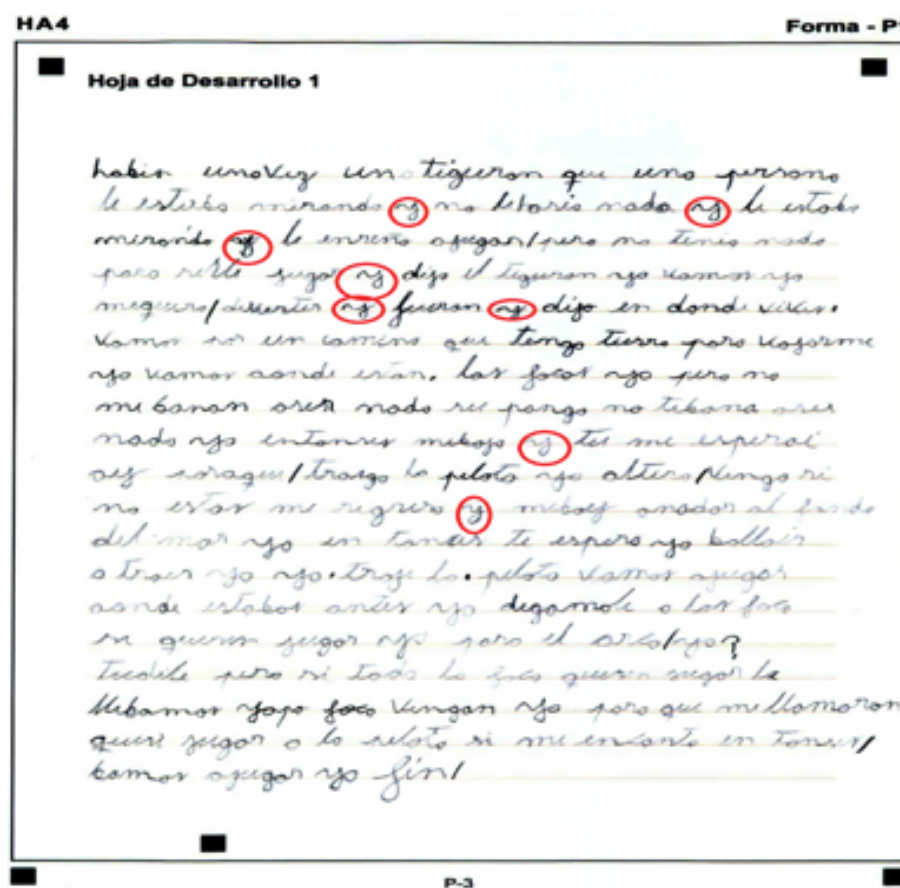 HA4
Forma - P1
Hoja de Desarrollo 1
habia unavez un tiguron que una persona
le estaba mirando y no letaria nada y le estaba
mirando y le enseño ajugar/pero no tenia nada
para jugar y dijo el tiguron yo vamos yo
divertir y fueron y dijo en donde vivis.
vamos por un camino que tengo tierra para
yo vamos aonde estan. las focas yo pero no
me banan aser nada no tebana aser
nada yo entonses mebajo y tu me esperai
traego la pelota yo altiro/tengo si
no estas me regreso y meboy anadar al fondo
del mar yo en tonses te espero yo
a traer yo yo. traje la. pelota vamos ajugar
aonde estabas antes yo degamole a las foca
si queren jugar yo para el arco/yo?
pero si toda la foca queren jugar la
llibamos foca vengan yo para que me llamaron
queri jugar a la pelota si me encanta en tonses/
bamos ajugar yo fin/
P-3